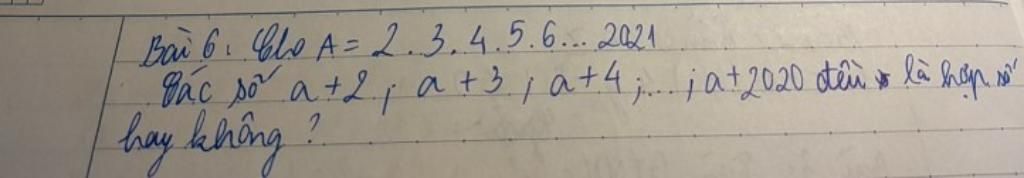 Bài 6: Cho A = 2.3.4.5.6... 2021
Các số a+2; a+3; a+4;...; a+2020 đều là hợp số
hay không?